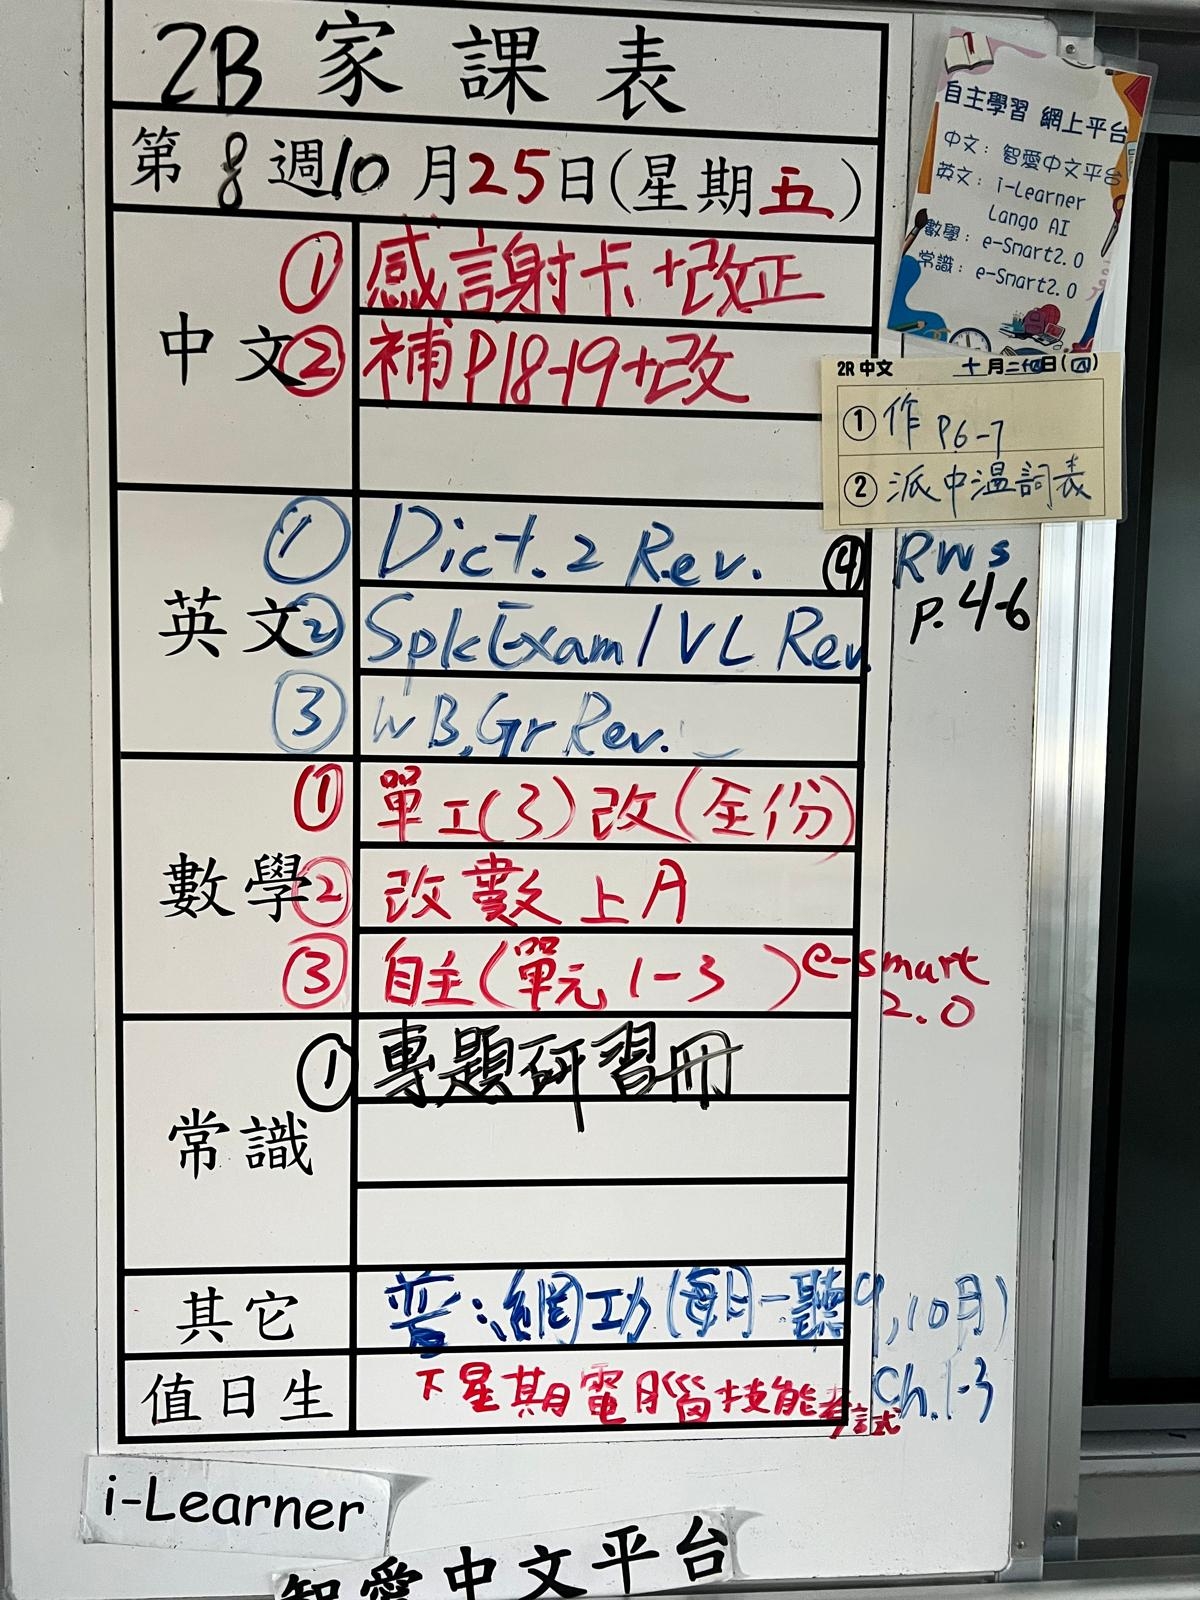 2B 家課表
第 8 週 10 月 25 日(星期五)
中文
① 感謝卡+改正
② 補P18-19+改
英文
① Dict. 2 Rev.
④ RWS
p. 4-6
② Spk Exam / VL Rev.
③ WB, Gr Rev.
數學
① 單工(3)改(全份)
② 改數上A
③ 自主(單元 1-3 ) e-smart
2.0
常識
① 專題研習冊
其它
普:網功(每月一聽9,10月)
值日生
下星期電腦技能考試
Ch.1-3
i-Learner
智愛中文平台
自主學習 網上平台
中文: 智愛中文平台
英文: i-Learner
Lango AI
數學: e-Smart2.0
常識: e-Smart2.0
2R 中文 十月二十四日(四)
① 作 P6-7
② 派中溫詞表